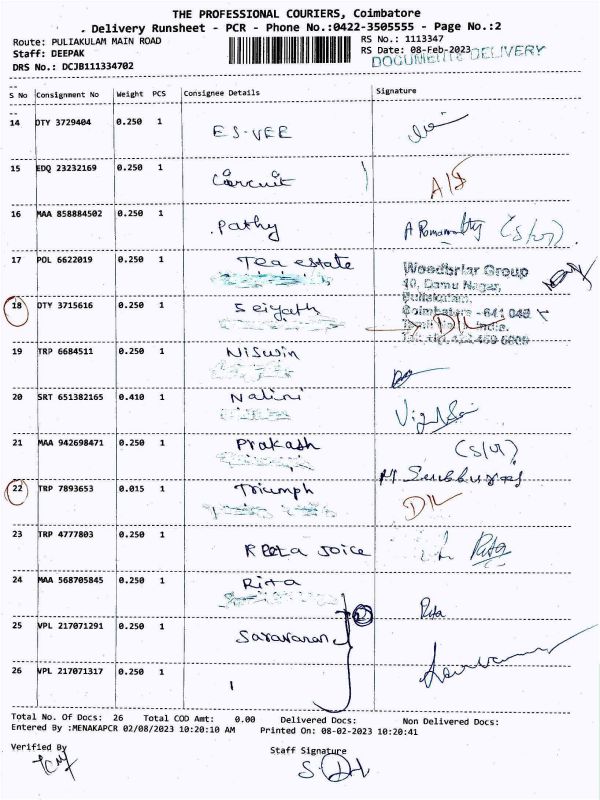 THE PROFESSIONAL COURIERS, Coimbatore
. Delivery Runsheet - PCR - Phone No.:0422-3505555 - Page No.:2
Route: PULIAKULAM MAIN ROAD RS No.: 1113347
Staff: DEEPAK RS Date: 08-Feb-2023
DRS No.: DCJB111334702 DOCUMENTS DELIVERY
S No Consignment No Weight PCS Consignee Details Signature
14 OTY 3729404 0.250 1 ES-VEE
15 EDQ 23232169 0.250 1 Circuit
16 MAA 858884502 0.250 1 Pathy (S/o)
17 POL 6622019 0.250 1 Tea estate
Woodbriar Group
10, Damu Nagar,
Puliakulam,
18 OTY 3715616 0.250 1 Seiyath
Coimbatore - 641 045
DIL
Tamil Nadu, India.
19 TRP 6684511 0.250 1 Niswin
20 SRT 651382165 0.410 1 Nalini
21 MAA 942698471 0.250 1 Prakash
22 TRP 7893653 0.015 1 Triumph DIL
23 TRP 4777803 0.250 1 Reeta Joice Rita
24 MAA 568705845 0.250 1 Rita Rita
25 VPL 217071291 0.250 1 Saravanan
26 VPL 217071317 0.250 1
Total No. Of Docs: 26 Total COD Amt: 0.00 Delivered Docs: Non Delivered Docs:
Entered By :MENAKAPCR 02/08/2023 10:20:10 AM Printed On: 08-02-2023 10:20:41
Verified By Staff Signature